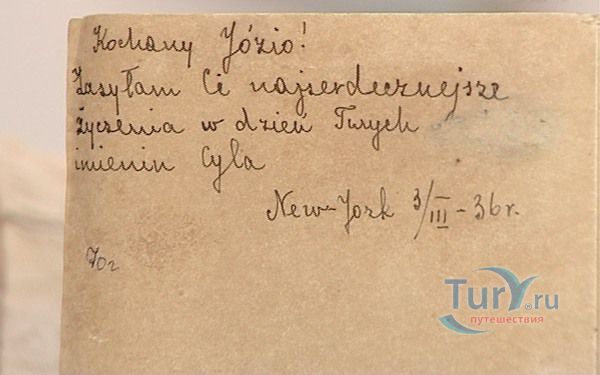 Kochany Józio!
Zasyłam Ci najserdeczniejsze
życzenia w dzień Twych
imienin Cyla
New-York 3/III-36 r.
70r
Tury.ru
путешествия